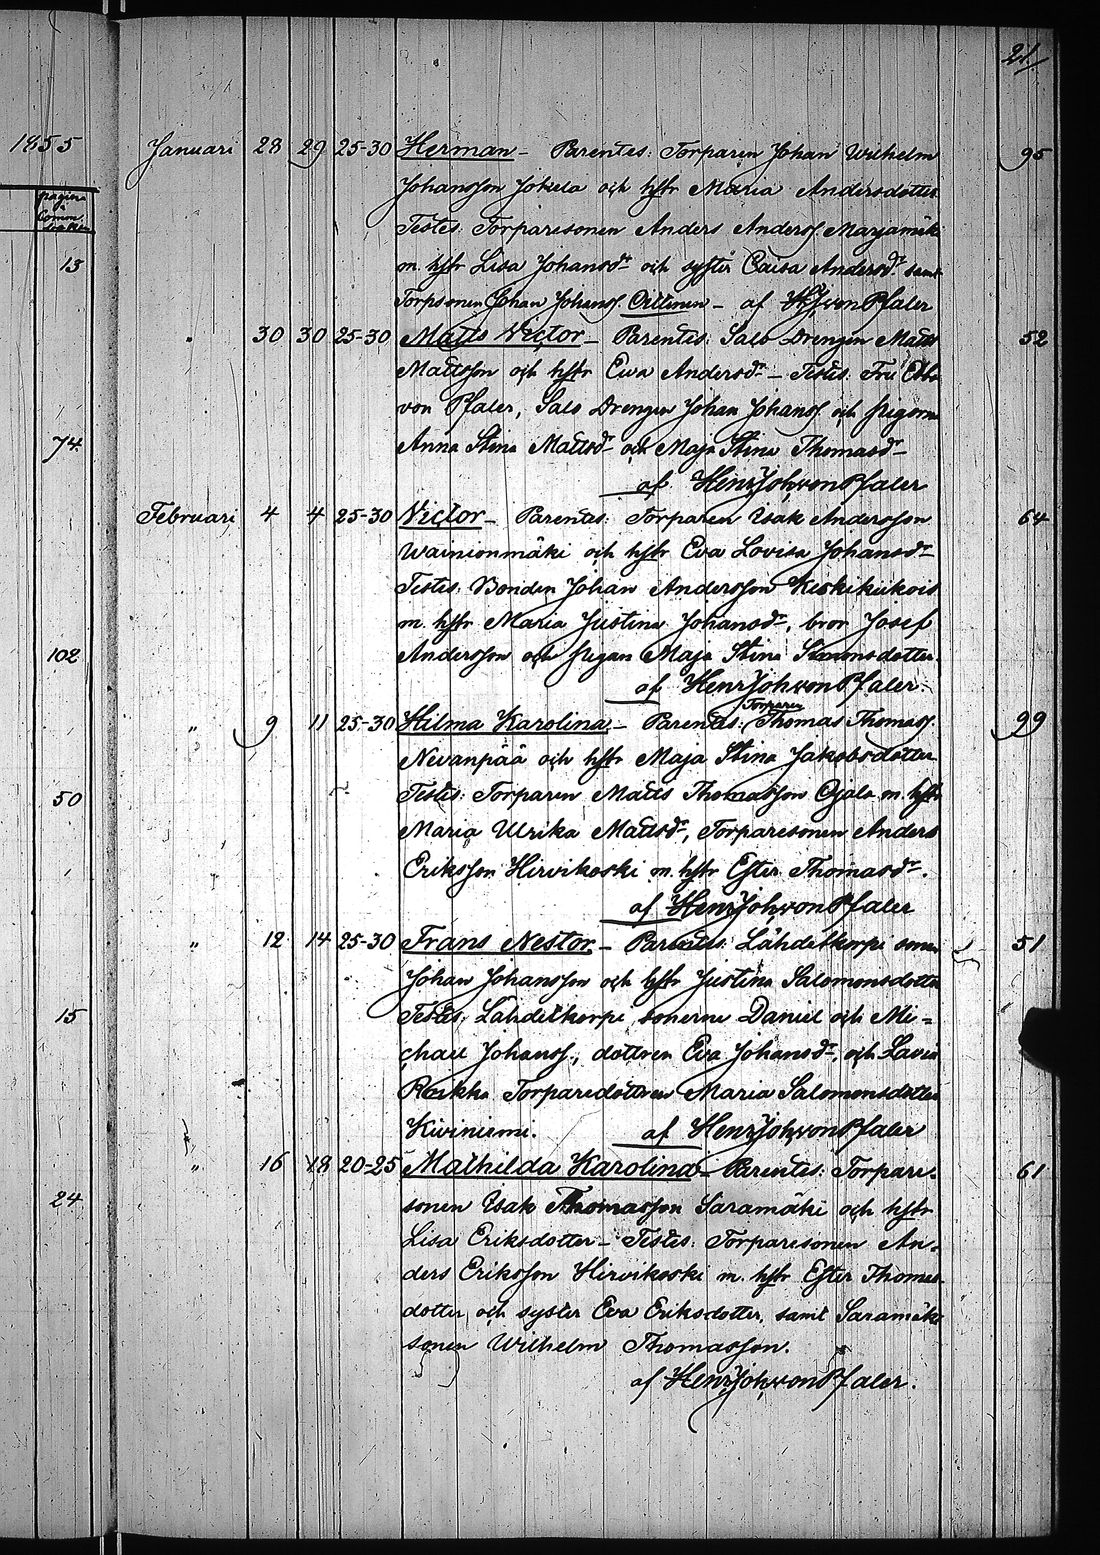 21.
1855
pagina
i
Commu-
niaken
13
74.
102
50
15
24
Januari 28 29 25-30 Herman - Parentes: Torparen Johan Wilhelm 95
Johansson Jokela och hstr Maria Andersdotter
Testes: Torparesonen Anders Anderss. Marjamäki
m. hstr Lisa Johansdr och syster Caisa Andersdr samt
Torpsonen Johan Johanss. Oittinen - af HJvonPfaler
" 30 30 25-30 Matts Victor - Parentes: Salo Drengen Matts 52
Mattsson och hstr Ewa Andersdr - Testes: Fru Ebba
von Pfaler, Salo Drengen Johan Johanss. och pigorna
Anna Stina Mattsdr och Maja Stina Thomasdr
af HenrJohvonPfaler
Februari 4 4 25-30 Victor - Parentes: Torparen Isak Andersson 64
Wainionmäki och hstr Eva Lovisa Johansdr
Testes: Bonden Johan Andersson Keskikiikois
m. hstr Maria Justina Johansdr, bror Josef
Andersson och pigan Maja Stina Simonsdotter.
af HenrJohvonPfaler.
" 9 11 25-30 Hilma Karolina - Parentes: Torparen Thomas Thomass. 99
Nevanpää och hstr Maja Stina Jakobsdotter
Testes: Torparen Matts Thomasson Ojala m. hstr
Maria Ulrika Mattsdr, Torparesonen Anders
Eriksson Hirvikoski m. hstr Ester Thomasdr.
af HenrJohvonPfaler
" 12 14 25-30 Frans Nestor - Parentes: Lähdetkorpi sonen 51
Johan Johansson och hstr Justina Salomonsdotter
Testes: Lähdetkorpi sonerne Daniel och Mi-
chael Johanss., dottren Eva Johansdr, och Lavia
Torparedottren Maria Salomonsdotter
Kiviniemi. af HenrJohvonPfaler
" 16 18 20-25 Mathilda Karolina - Parentes: Torpare- 61
sonen Isak Thomasson Saramäki och hstr
Lisa Eriksdotter - Testes: Torparesonen An-
ders Eriksson Hirvikoski m. hstr Ester Thomas-
dotter och syster Eva Eriksdotter, samt Saramäki
sonen Wilhelm Thomasson.
af HenrJohvonPfaler.